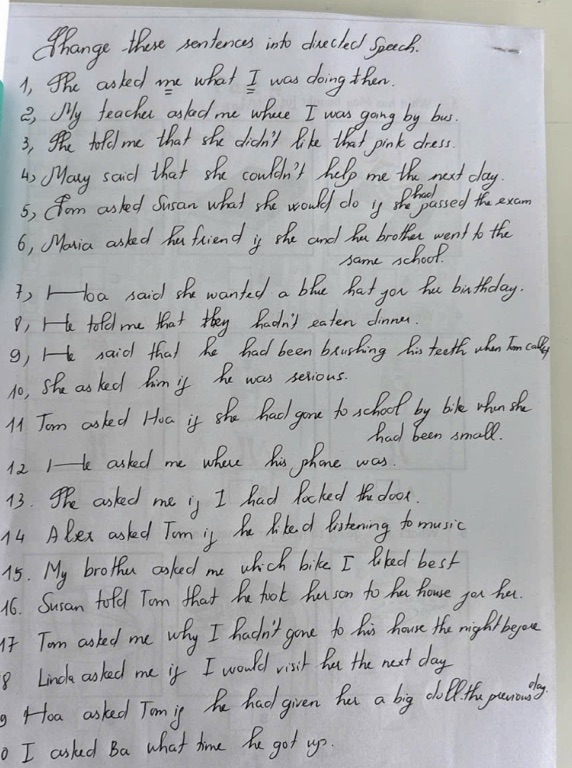 Change these sentences into directed speech.
1, She asked me what I was doing then.
2, My teacher asked me where I was going by bus.
3, She told me that she didn't like that pink dress.
4, Mary said that she couldn't help me the next day.
5, Tom asked Susan what she would do if she had passed the exam
6, Maria asked her friend if she and her brother went to the
same school.
7, Hoa said she wanted a blue hat for her birthday.
8, He told me that they hadn't eaten dinner.
9, He said that he had been brushing his teeth when Tom called
10, She asked him if he was serious.
11 Tom asked Hoa if she had gone to school by bike when she
had been small.
12 He asked me where his phone was.
13. She asked me if I had locked the door.
14 Alex asked Tom if he liked listening to music
15. My brother asked me which bike I liked best
16. Susan told Tom that he took her son to her house for her.
17 Tom asked me why I hadn't gone to his house the night before
8 Linda asked me if I would visit her the next day
9 Hoa asked Tom if he had given her a big doll the previous day.
0 I asked Ba what time he got up.